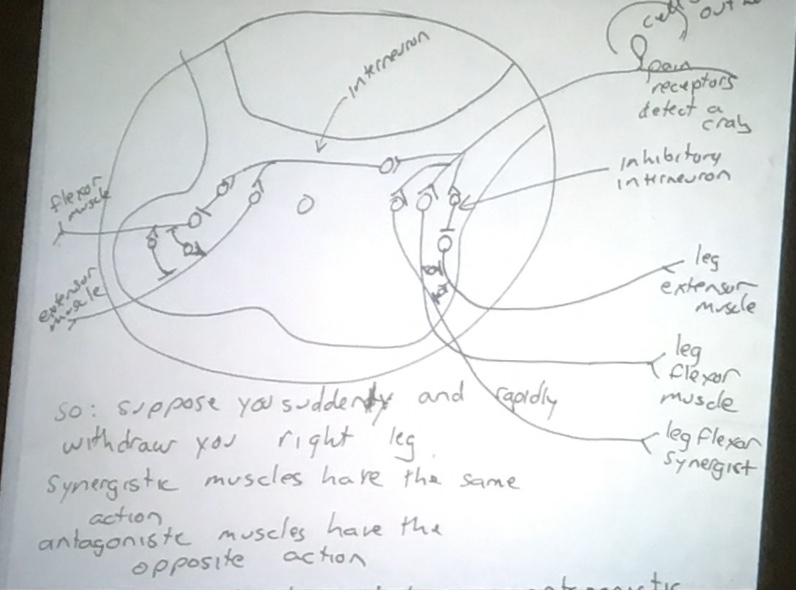 cell
out
pain
receptors
detect a
crab
interneuron
inhibitory
interneuron
flexor
muscle
extensor
muscle
leg
extensor
muscle
leg
flexor
muscle
leg flexor
synergist
so: suppose you suddently and rapidly
withdraw you right leg
synergistic muscles have the same
action
antagonistc muscles have the
opposite action